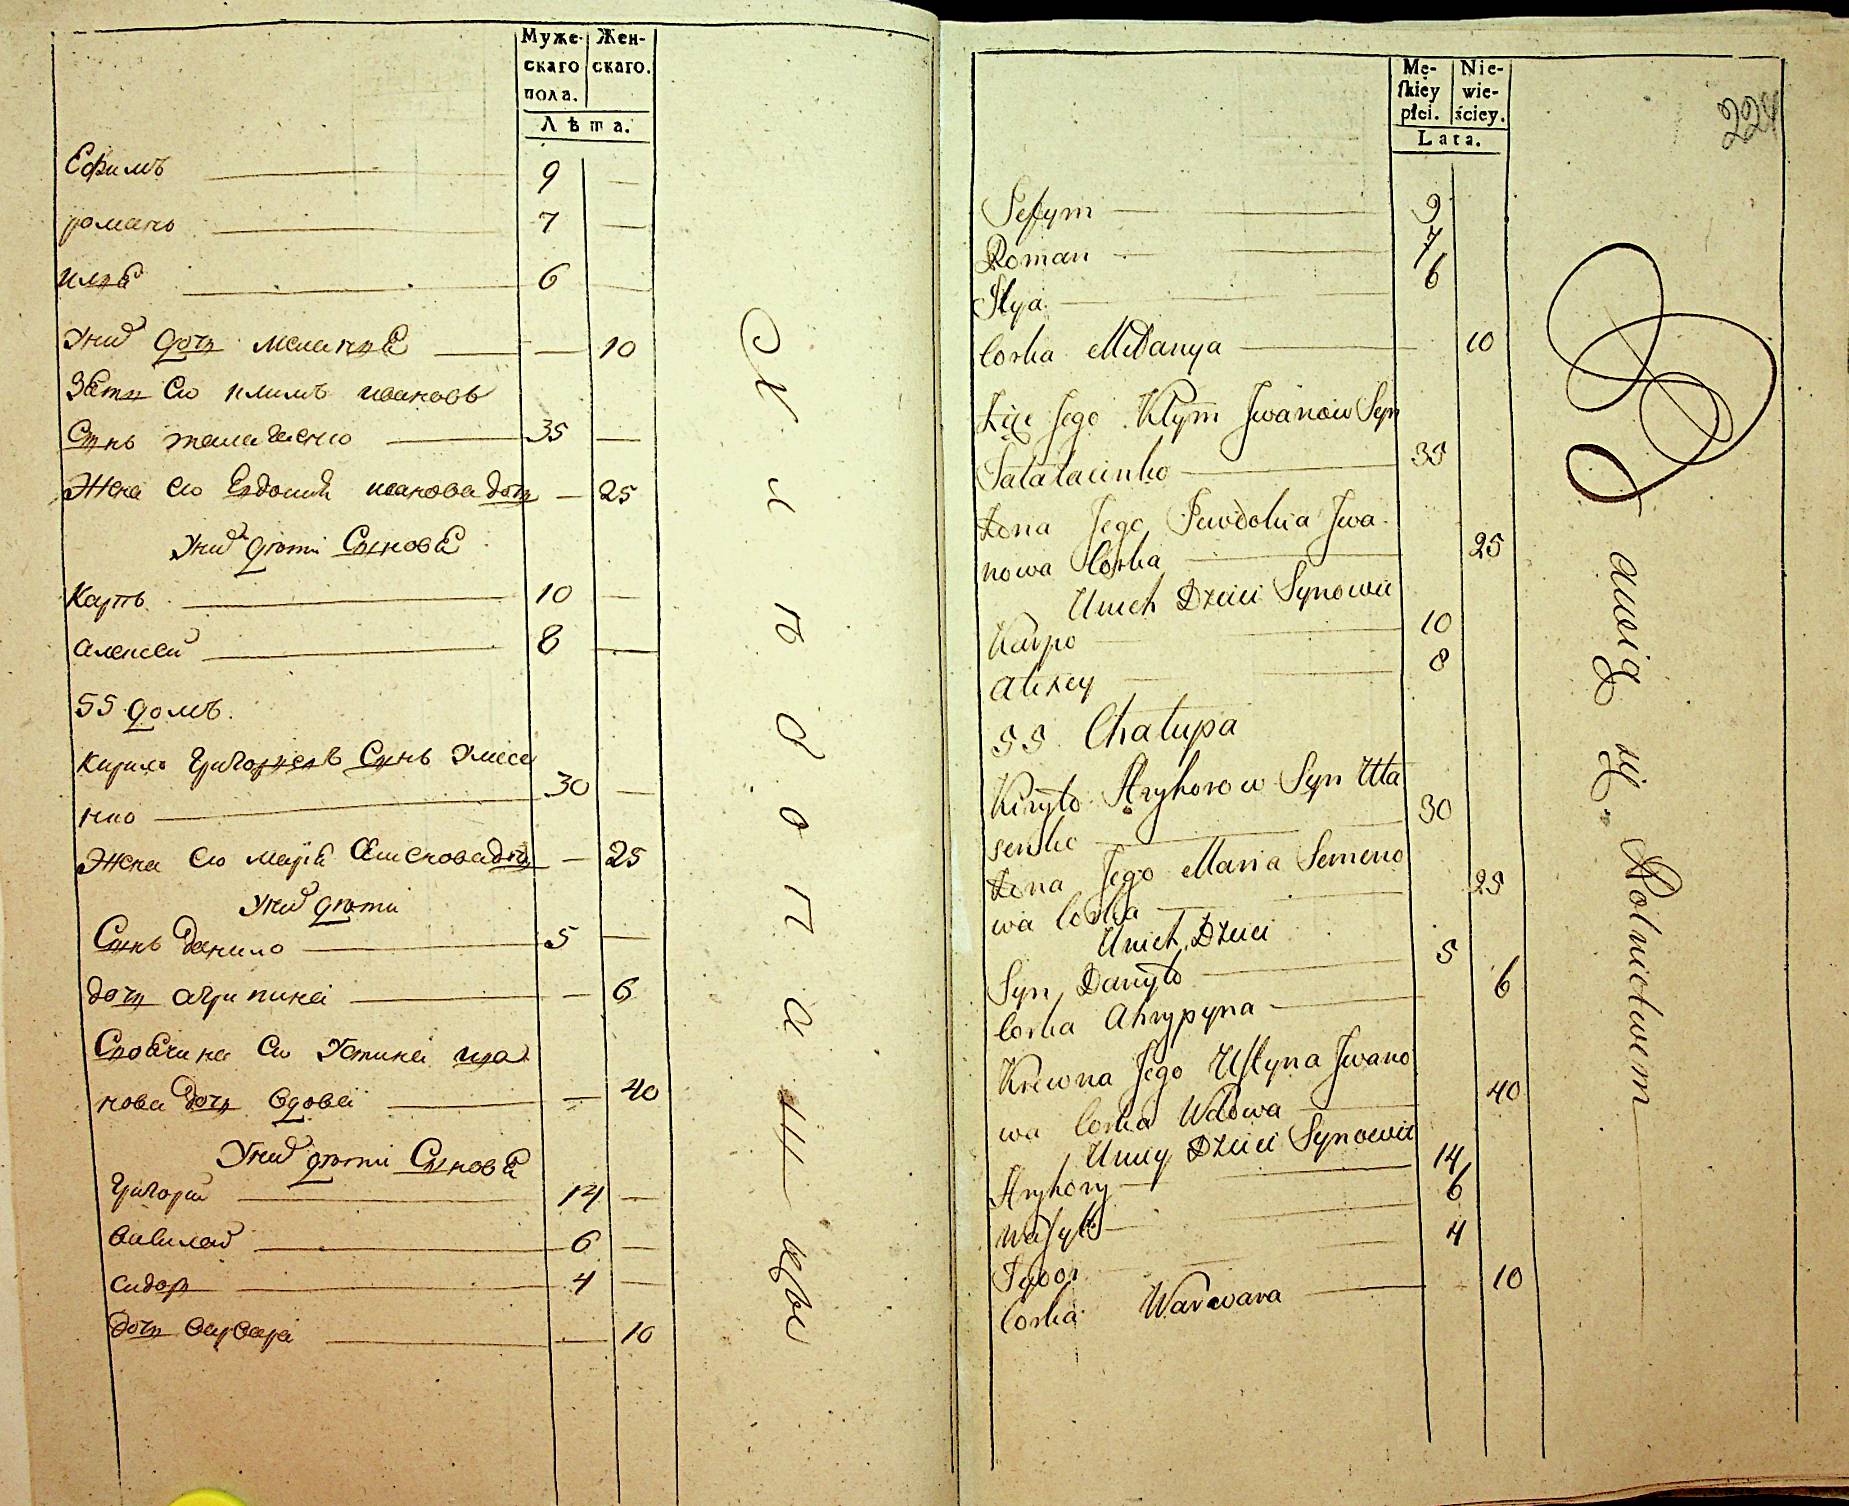 Муже- Жен-
скаго скаго.
пола.
Лѣта.
Ефимъ 9
романъ 7
илья 6
Унихъ дочь меланья 10
Зять его климъ ивановъ
Сынъ 35
Жена его Евдокия иванова дочь 25
Унихъ дѣти Сыновья
Карпъ 10
алексей 8
55 домъ.
Кирило Григорьевъ Сынъ Уласе
нко 30
Жена его марья Семенова дочь 25
Унихъ дѣти
Сынъ данило 5
дочь агрипина 6
Своячина его Устина ива
нова дочь вдова 40
Унихъ дѣти Сыновья
Григорий 14
василей 6
сидор 4
дочь варвара 10
Хлебопашцы
Mę- Nie-
skiey wie-
płci. ściey.
Lata.
224
Jefym 9
Roman 7
Ilya 6
Corka Melanya 10
Zięć Jego Klym Jwanow Syn
35
Zona Jego Jewdokia Jwa
nowa Corka 25
Unich Dzieci Synowie
Karpo 10
Alexey 8
55 Chałupa
Kiryło Hryhorow Syn Ula
senko 30
Zona Jego Maria Semeno
wa Corka 25
Unich Dzieci
Syn Danyło 5
Corka Ahrypyna 6
Krewna Jego Ustyna Jwano
wa Corka Wdowa 40
Uniey Dzieci Synowie
Hryhory 14
Wasyl 6
Sydor 4
Corka Warwara 10
Bawią się Rolnictwem